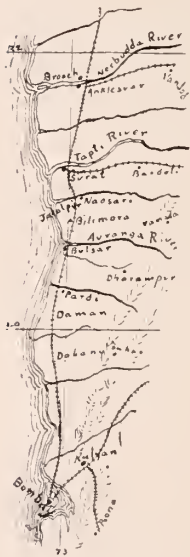 22
Broach
Nerbudda River
Anklesvar
Tapti River
Surat
Bardoli
Jalalpur
Naosari
Bilimora
Auranga River
Bulsar
Dharampur
Pardi
Daman
20
Kalyan
Bombay
73